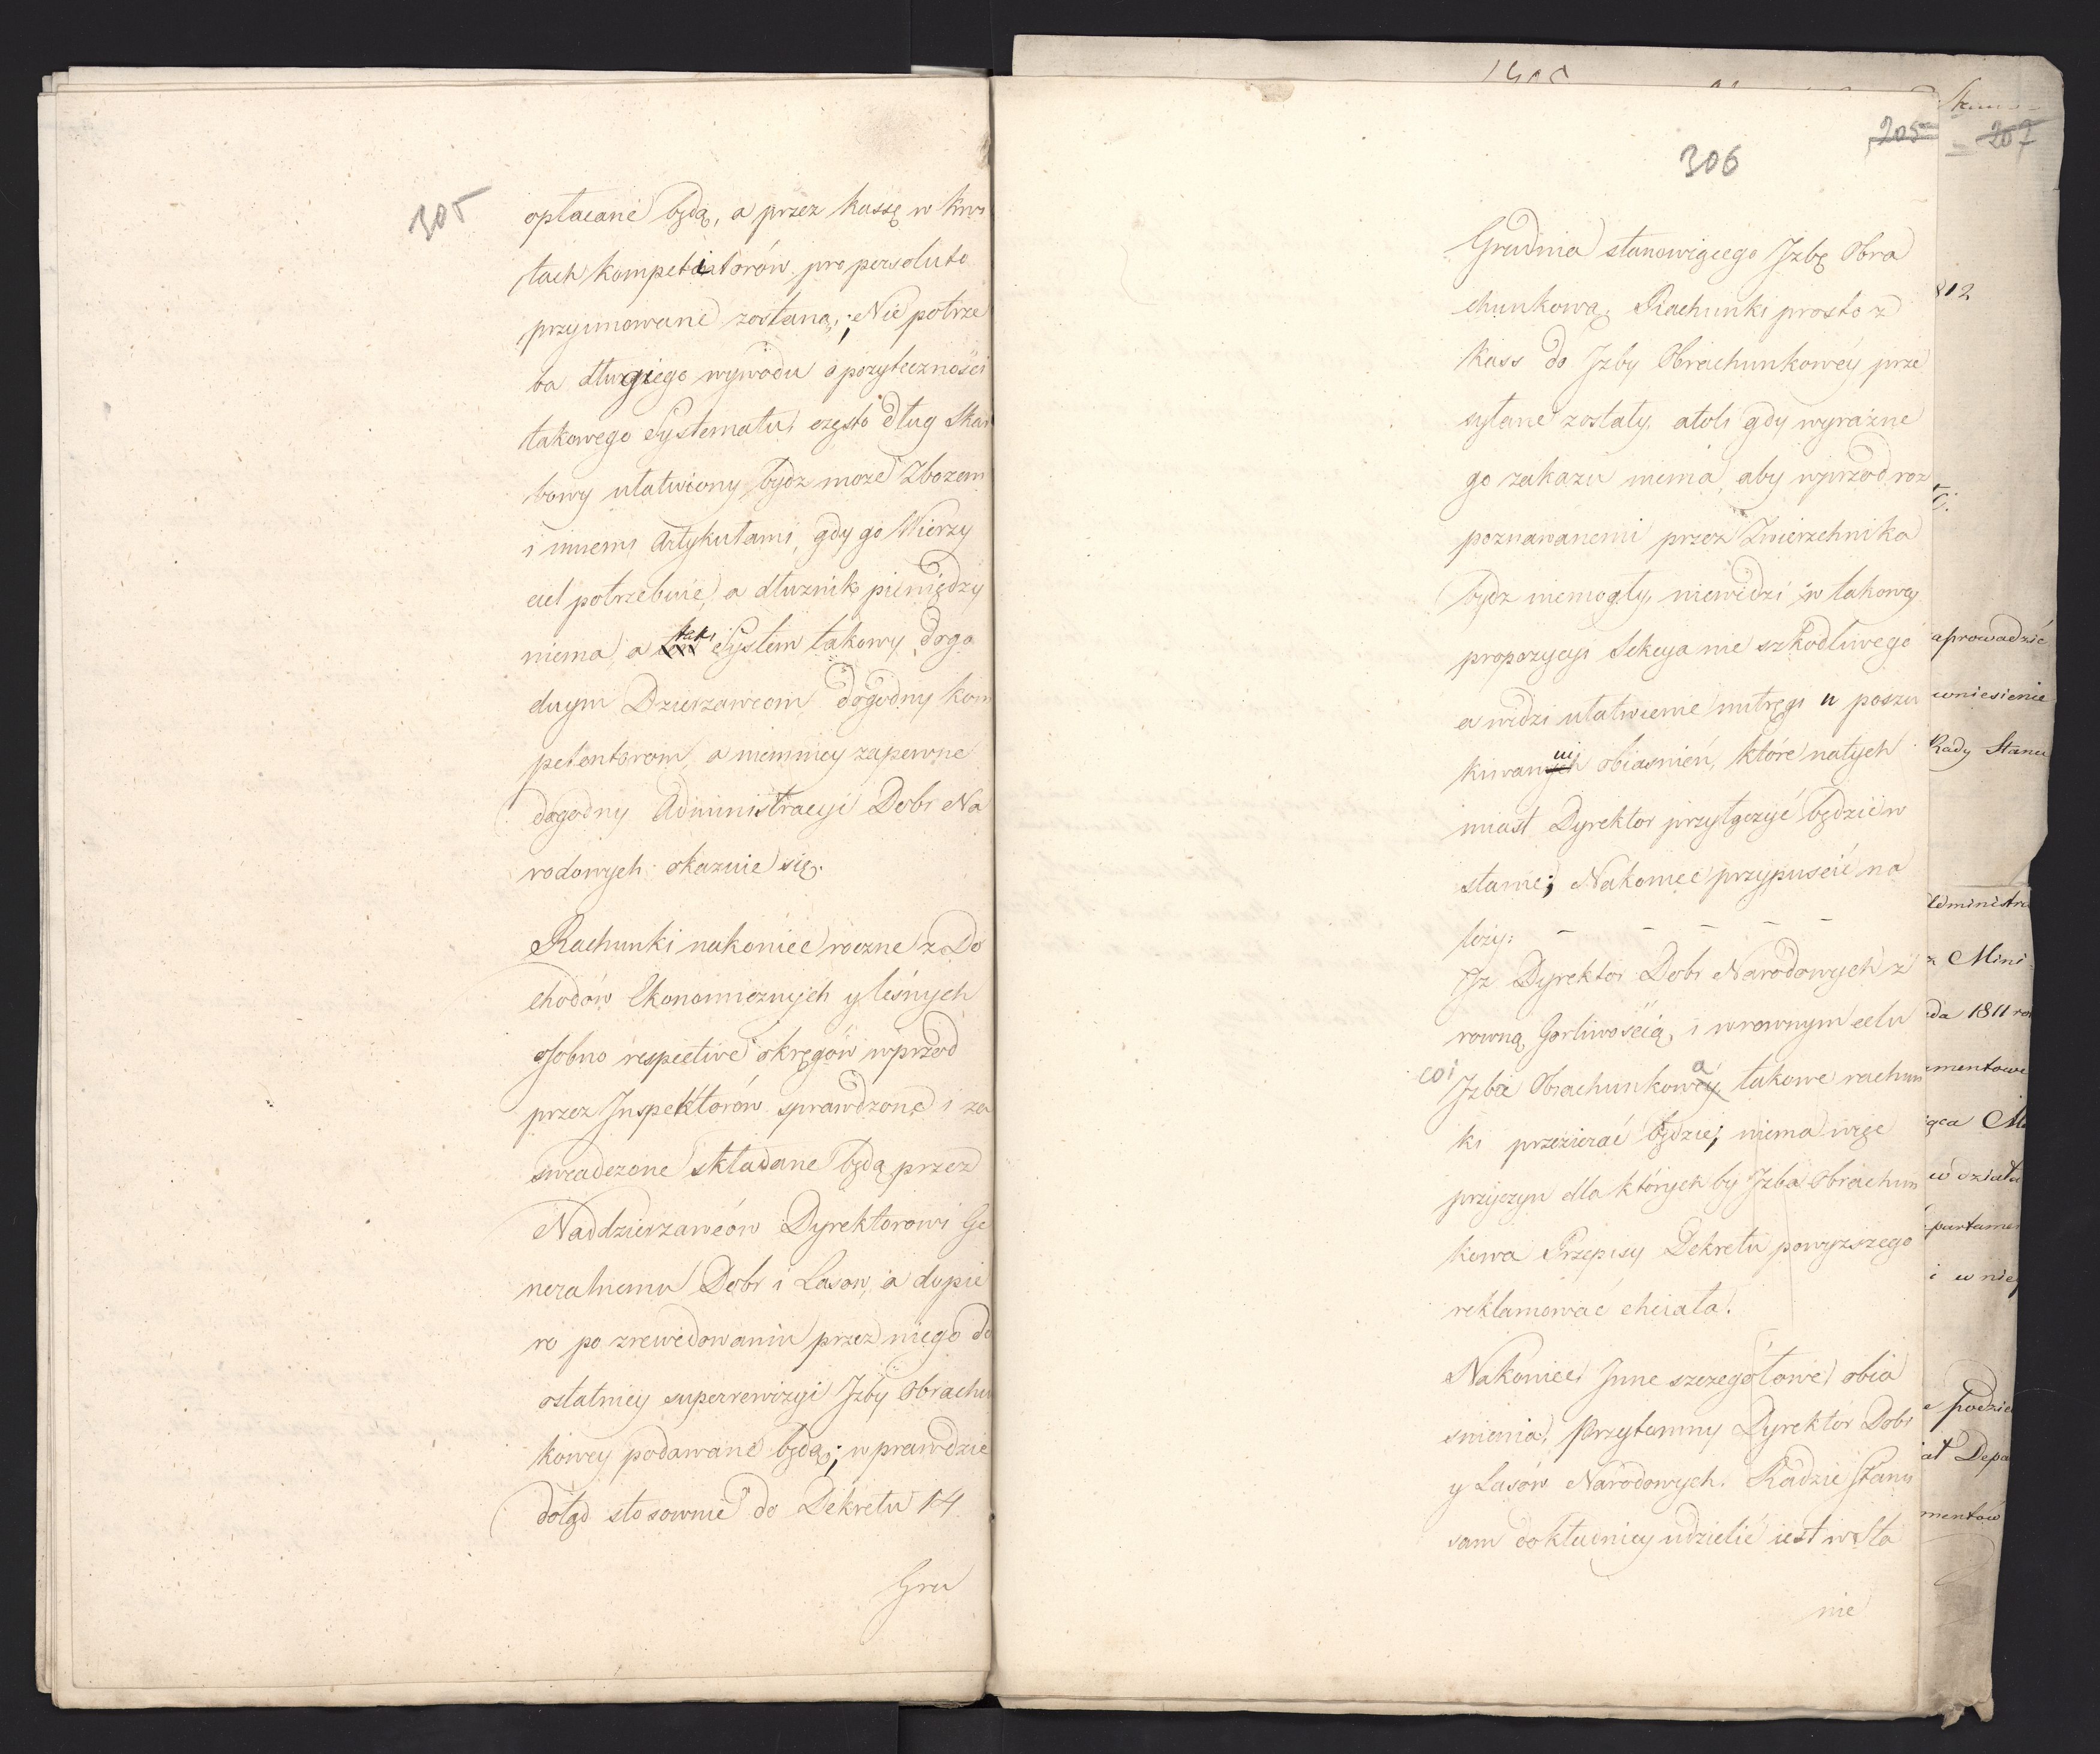 305
opłacane będą, a przez Kassę w kwi
tach kompetentorów pro persoluto
przyimowane zostaną; Nie potrze
ba długiego wywodu o pozyteczności
takowego Systematu, często dług Skar
bowy ułatwiony bydz może Zbozem
i innemi Artykułami, gdy go Wierzy
ciel potrzebuie, a dłuznik pieniędzy
niema, a tak System takowy dogo
dnym Dzierzawcom dogodny kom
petentorom, a niemniey zapewne
dogodny Administracyi Dobr Na
rodowych okazuie się.
Rachunki nakoniec roczne z Do
chodów Ekonomicznych y leśnych
osobno respective okręgów wprzód
przez Inspektorów sprawdzone i za
świadczone składane będą przez
Naddzierzawców Dyrektorowi Ge
neralnemu Dobr i Lasow, a dopie
ro po zrewidowaniu przez niego do
ostatniey superrewizyi Izby Obrachun
kowey podawane będą; w prawdzie
dotąd stosownie do Dekretu 14
Gru
306
205
Grudnia stanowiącego Izbę Obra
chunkową, Rachunki prosto z
Kass do Izby Obrachunkowéy prze
syłane zostały, atoli gdy wyraźne
go zakazu niema, aby wprzód roz
poznawanemi przez Zwierzchnika
bydz niemogły, niewidzi w takowey
propozycyi Sekcya nic szkodliwego
a widzi ułatwienie mitręgi w poszu
kiwaniu obiasnień, które natych
miast Dyrektor przyłączyć będzie w
stanie; Nakoniec przypuścić na
leży: — — — —
Iz Dyrektor Dobr Narodowych z
rowną Gorliwością, i w rownym celu
coi Izba Obrachunkowa takowe rachun
ki przezierać będzie; niema więc
przyczyn dla których by Izba Obrachun
kowa Przepisy Dekretu powyzszego
reklamować chciała.
Nakoniec Inne szczegółowe obia
snienia, Przytomny Dyrektor Dobr
y Lasów Narodowych. Radzie Stanu
sam dokładniey udzielić iest w sta
nie
207
812
aprowadzić
wniesienie
Rady Stanu
dministra
z Mini
da 1811 ro
mentowe
ąca M
ów działa
partamen
i w niey
e podzie
at Depa
mentów